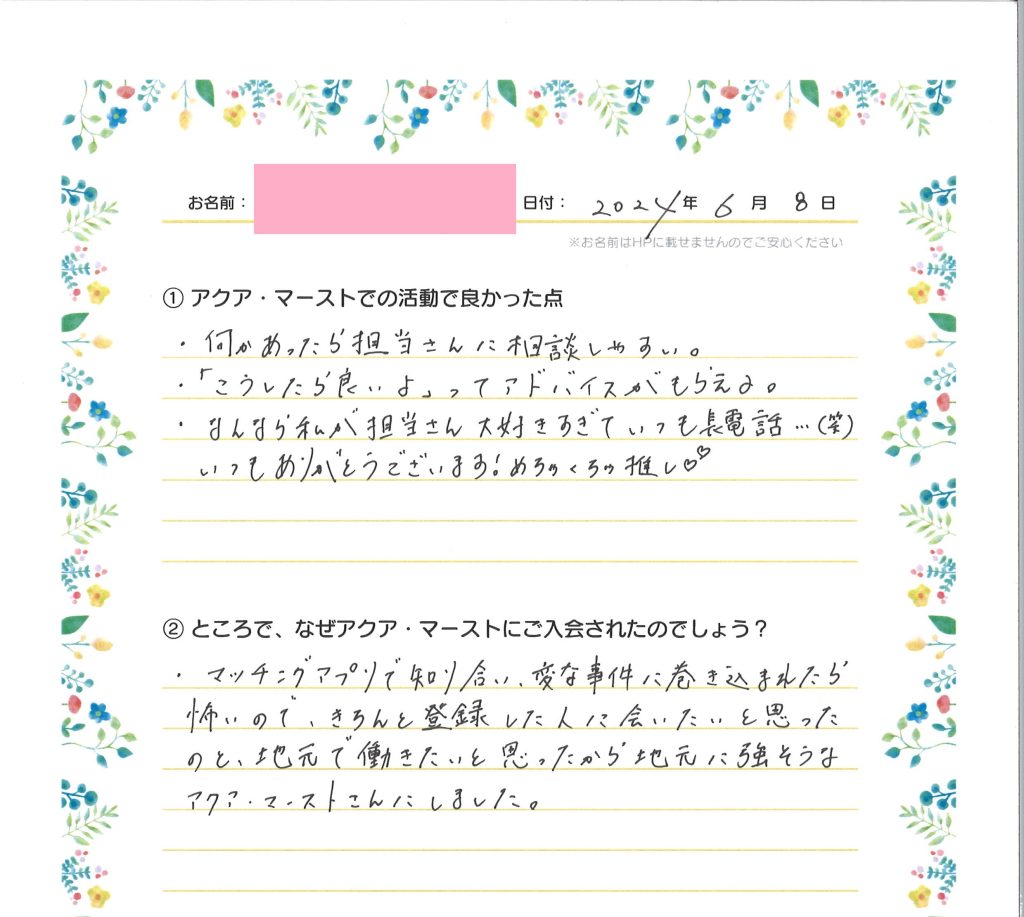 お名前： 日付： 2024年 6月 8日
※お名前はHPに載せませんのでご安心ください
① アクア・マーストでの活動で良かった点
・何かあったら担当さんに相談しやすい。
・「こうしたら良いよ」ってアドバイスがもらえる。
・なんなら私が担当さん大好きすぎていつも長電話…(笑)
いつもありがとうございます!めちゃくちゃ推し♡♡
② ところで、なぜアクア・マーストにご入会されたのでしょう？
・マッチングアプリで知り合い、変な事件に巻き込まれたら
怖いので、きちんと登録した人に会いたいと思った
のと、地元で働きたいと思ったから地元に強そうな
アクア・マーストさんにしました。